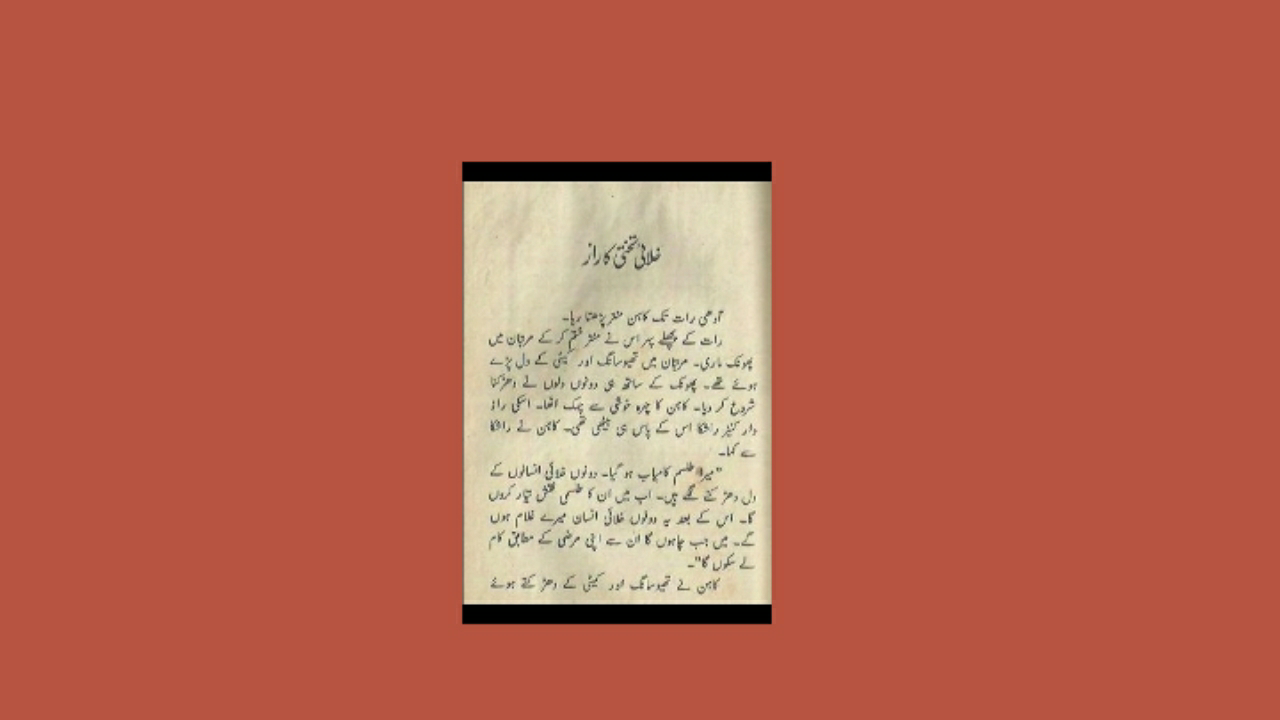 خلائی تختی کا راز
آدھی رات تک کاہن منتر پڑھتا رہا۔
رات کے پچھلے پہر اس نے منتر ختم کر کے مرتبان میں
پھونک ماری۔ مرتبان میں تھیوسانگ اور کیٹی کے دل پڑے
ہوئے تھے۔ پھونک کے ساتھ ہی دونوں دلوں نے دھڑکنا
شروع کر دیا۔ کاہن کا چہرہ خوشی سے چمک اٹھا۔ اسکی راز
دار کنیز راشکا اس کے پاس ہی بیٹھی تھی۔ کاہن نے راشکا
سے کہا۔
"میرا طلسم کامیاب ہو گیا۔ دونوں خلائی انسانوں کے
دل دھڑکنے لگے ہیں۔ اب میں ان کا طلسمی نقش تیار کروں
گا۔ اس کے بعد یہ دونوں خلائی انسان میرے غلام ہوں
گے۔ میں جب چاہوں گا ان سے اپنی مرضی کے مطابق کام
لے سکوں گا"۔
کاہن نے تھیوسانگ اور کیٹی کے دھڑکتے ہوئے